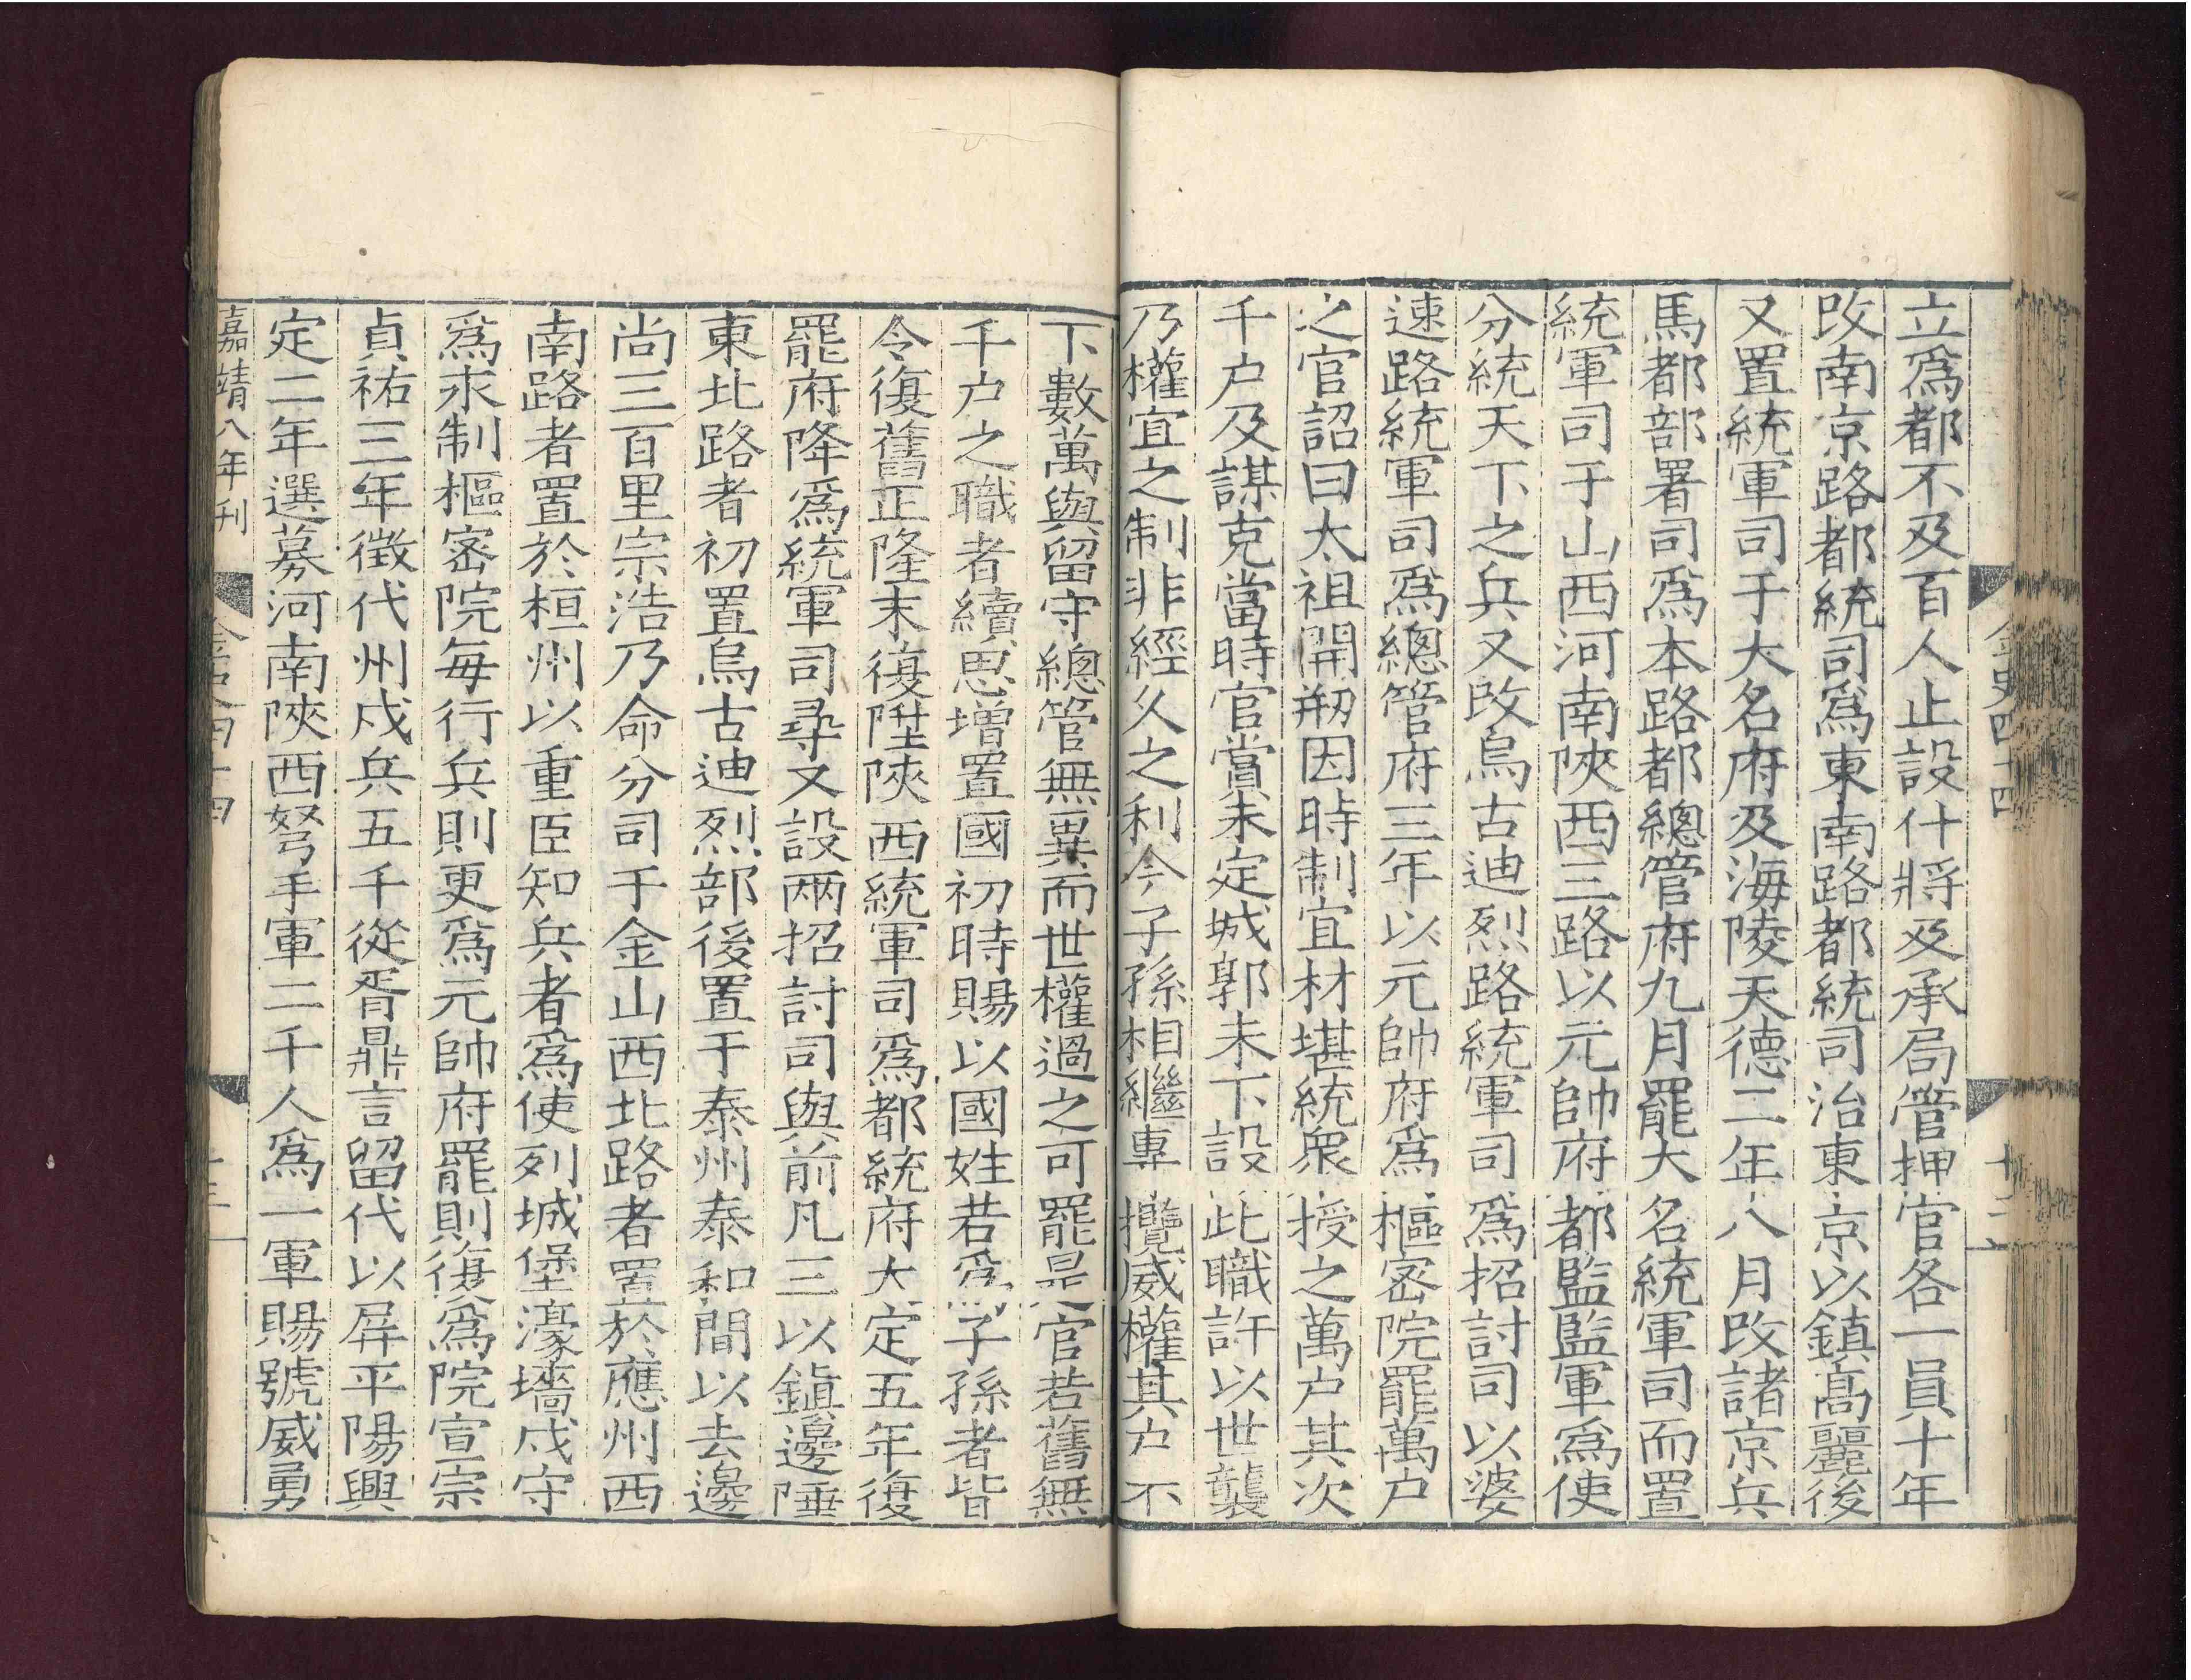 金史四十四
十二
立爲都不及百人止設什將及承局管押官各一員十年
改南京路都統司爲東南路都統司治東京以鎮髙麗後
又置統軍司于大名府及海陵天德二年八月改諸京兵
馬都部署司爲本路都總管府九月罷大名統軍司而置
統軍司于山西河南陝西三路以元帥府都監監軍爲使
分統天下之兵又改烏古迪烈路統軍司爲招討司以婆
速路統軍司爲總管府三年以元帥府爲樞密院罷萬户
之官詔曰太祖開刱因時制宜材堪統衆授之萬户其次
千户及謀克當時官賞未定城郭未下設此職許以世襲
乃權宜之制非經久之利今子孫相繼專攬威權其户不
下數萬與留守總管無異而世權過之可罷是官若舊無
千户之職者續思增置國初時賜以國姓若爲子孫者皆
令復舊正隆末復陞陝西統軍司爲都統府大定五年復
罷府降爲統軍司尋又設兩招討司與前凡三以鎮邊陲
東北路者初置烏古迪烈部後置于泰州泰和間以去邊
尚三百里宗浩乃命分司于金山西北路者置於應州西
南路者置於桓州以重臣知兵者爲使列城堡濠墻戍守
爲永制樞密院每行兵則更爲元帥府罷則復爲院宣宗
貞祐三年徵代州戍兵五千從胥鼎言留代以屏平陽興
定二年選募河南陝西弩手軍二千人爲一軍賜號威勇
嘉靖八年刊
金史四十四